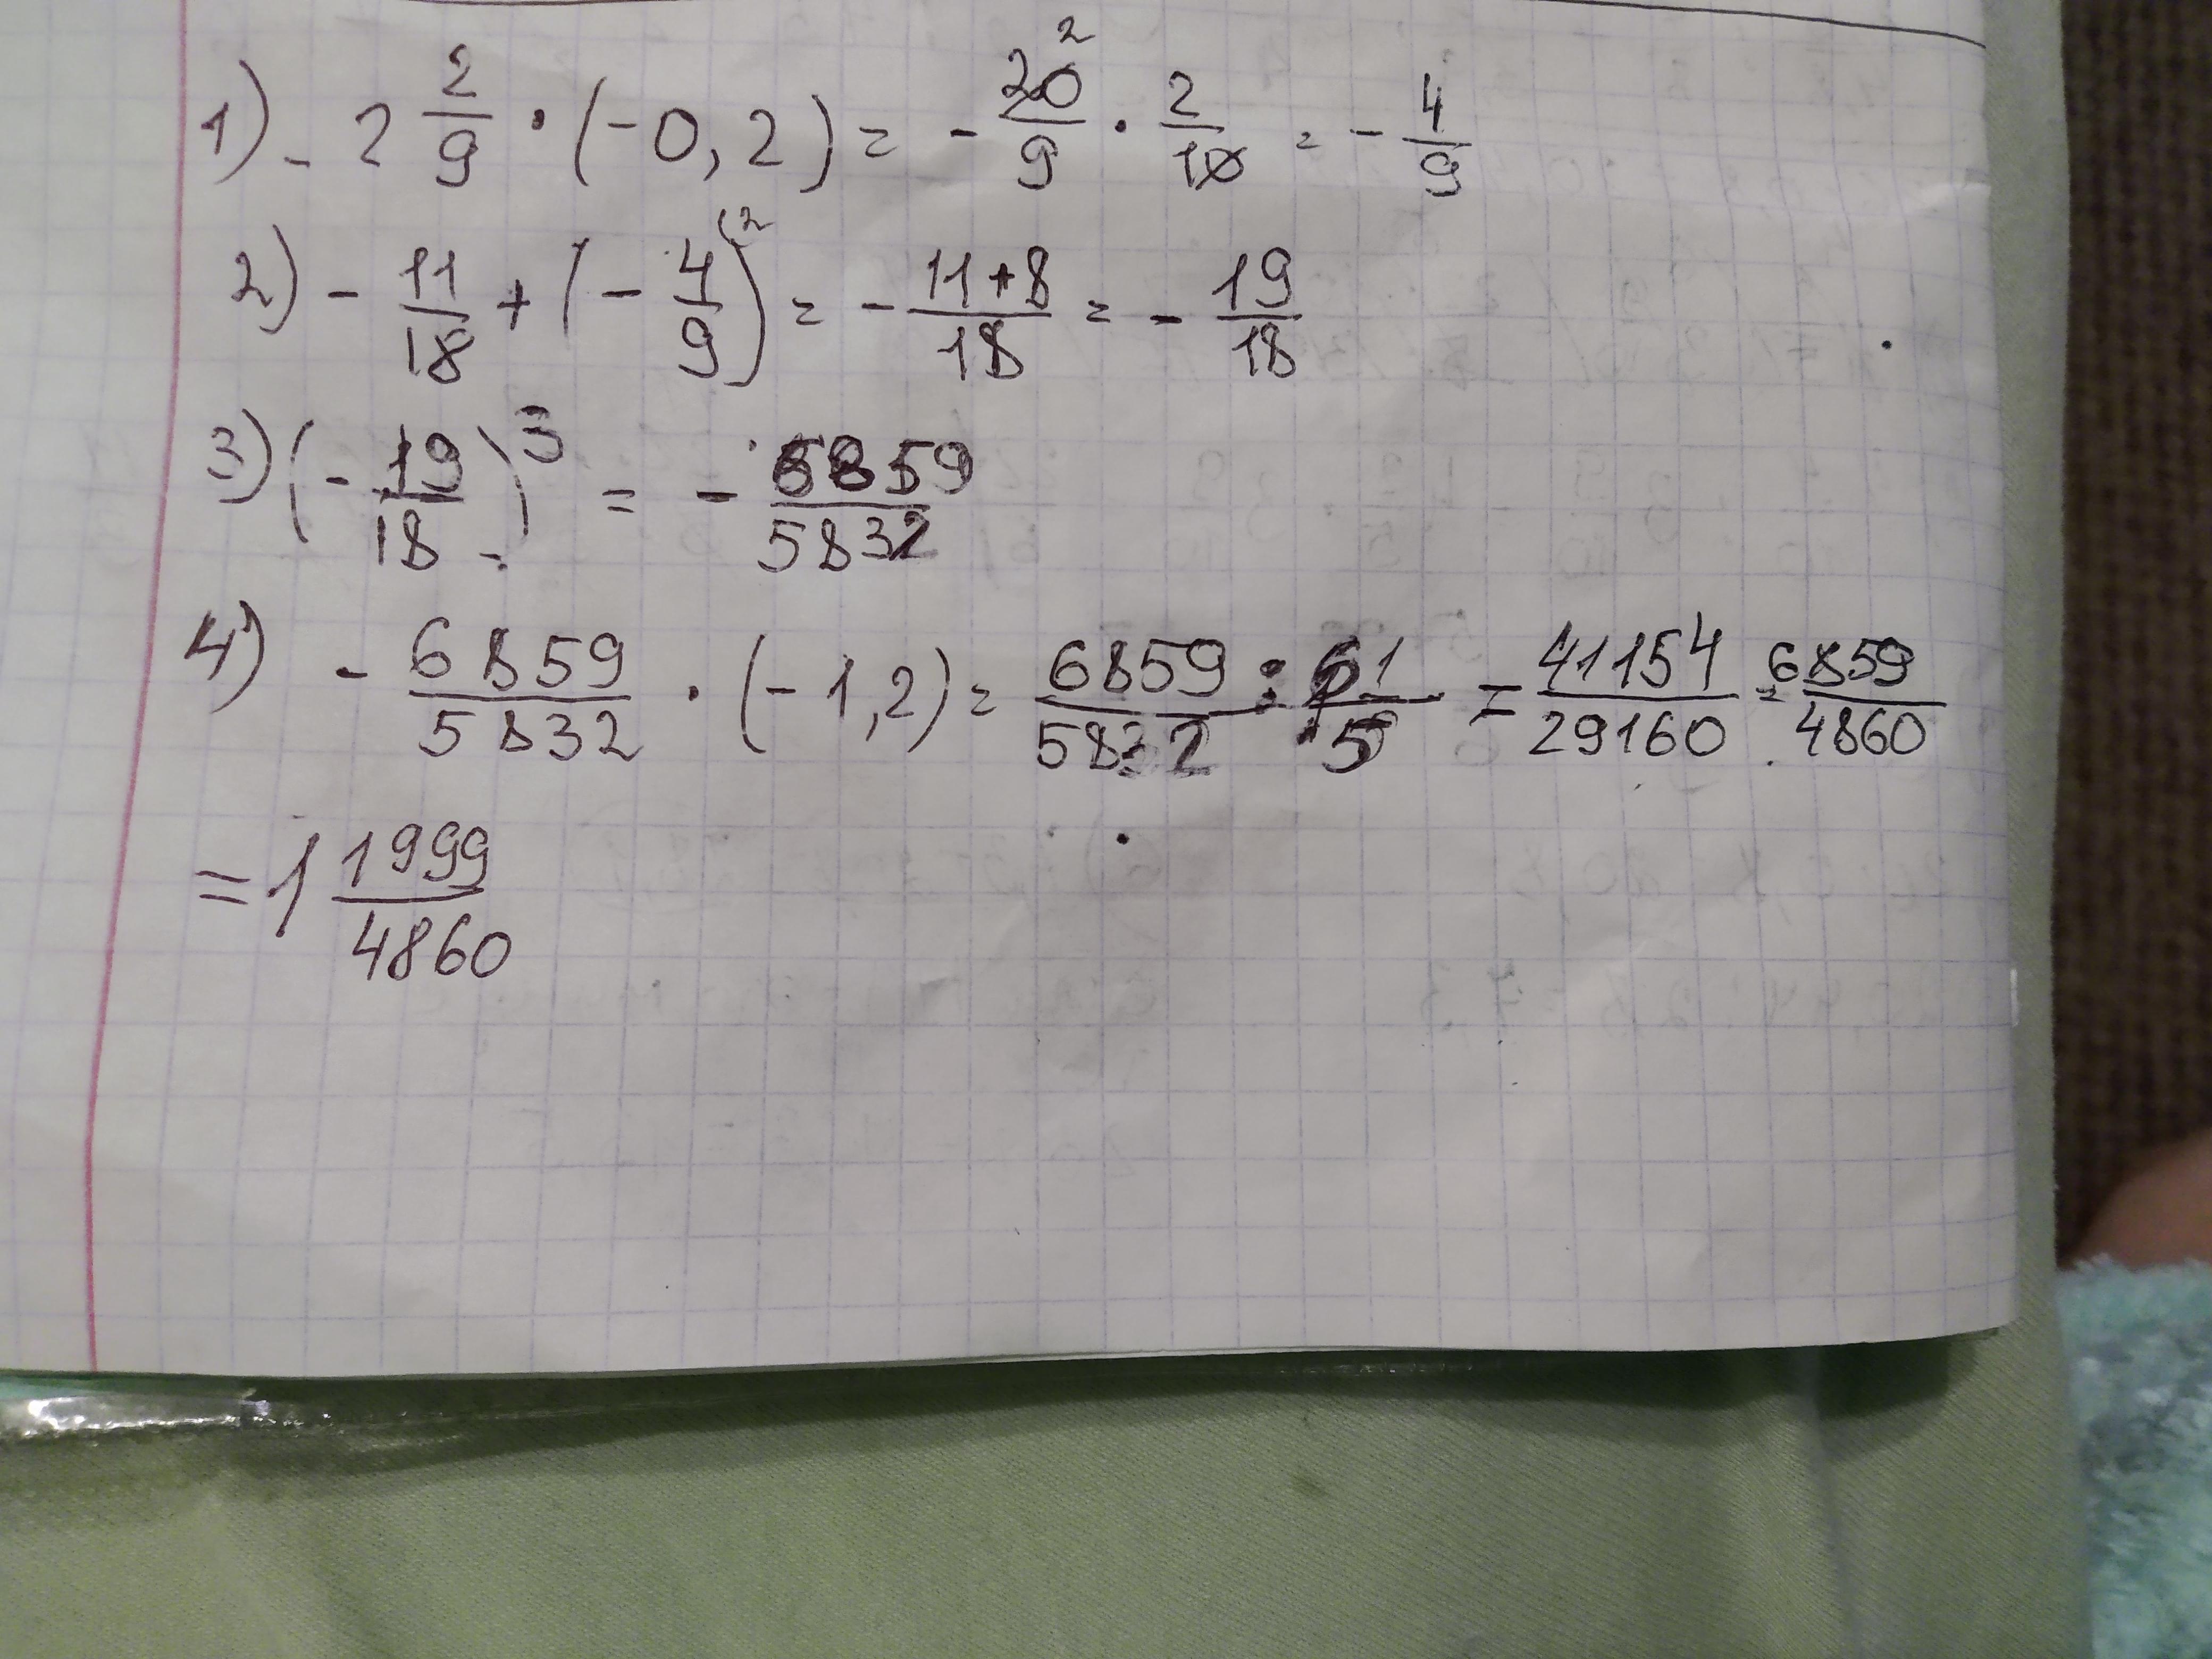 1) - 2 2/9 · (-0,2) = - 20/9 2 · 2/10 = - 4/9
2) - 11/18 + (- 4/9)(2 = - 11+8/18 = - 19/18
3) (- 19/18)³ = - 6859/5832
4) - 6859/5832 · (-1,2) = 6859/5832 : 1/5 = 41154/29160 = 6859/4860
= 1 1999/4860